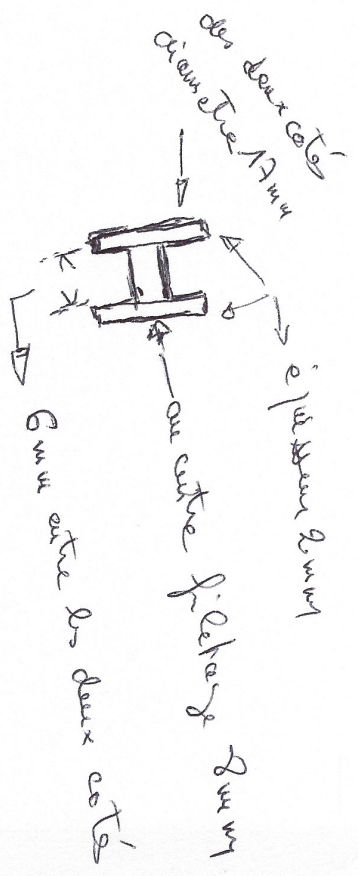 des deux cotés
diamètre 17mm
épaisseur 2mm
au centre filetage 2mm
6mm entre les deux coté